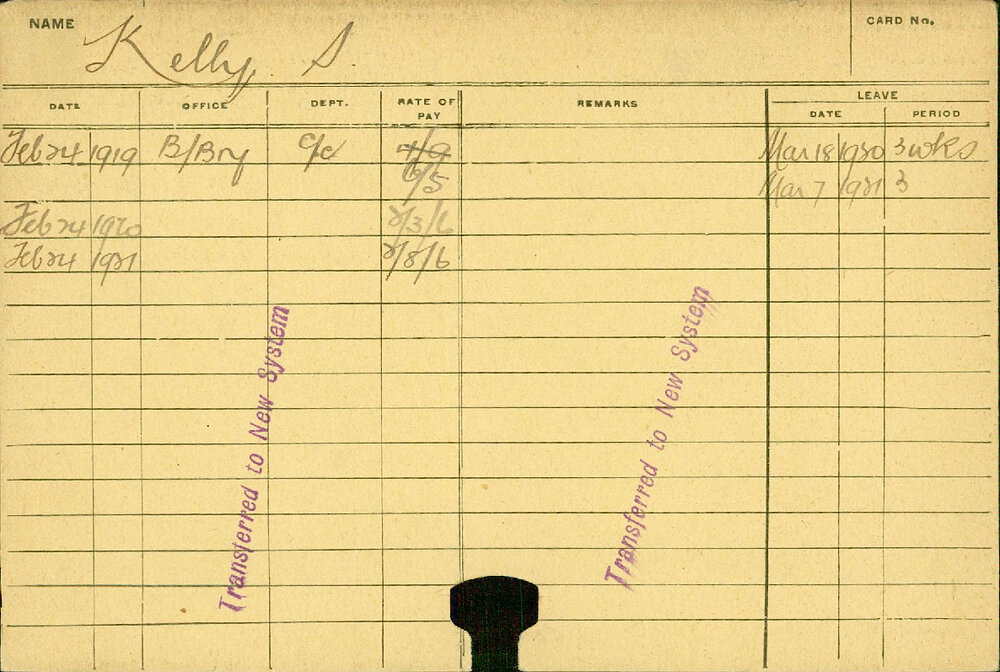 NAME Kelly, S. CARD No.
DATE OFFICE DEPT. RATE OF PAY REMARKS LEAVE
DATE PERIOD
Feb 24 1919 B/Bry C/C 4/9 Mar 18 1920 3 wks
6/5 Mar 7 1921 3
Feb 24 1920 2/3/6
Feb 24 1921 2/8/6
Transferred to New System
Transferred to New System